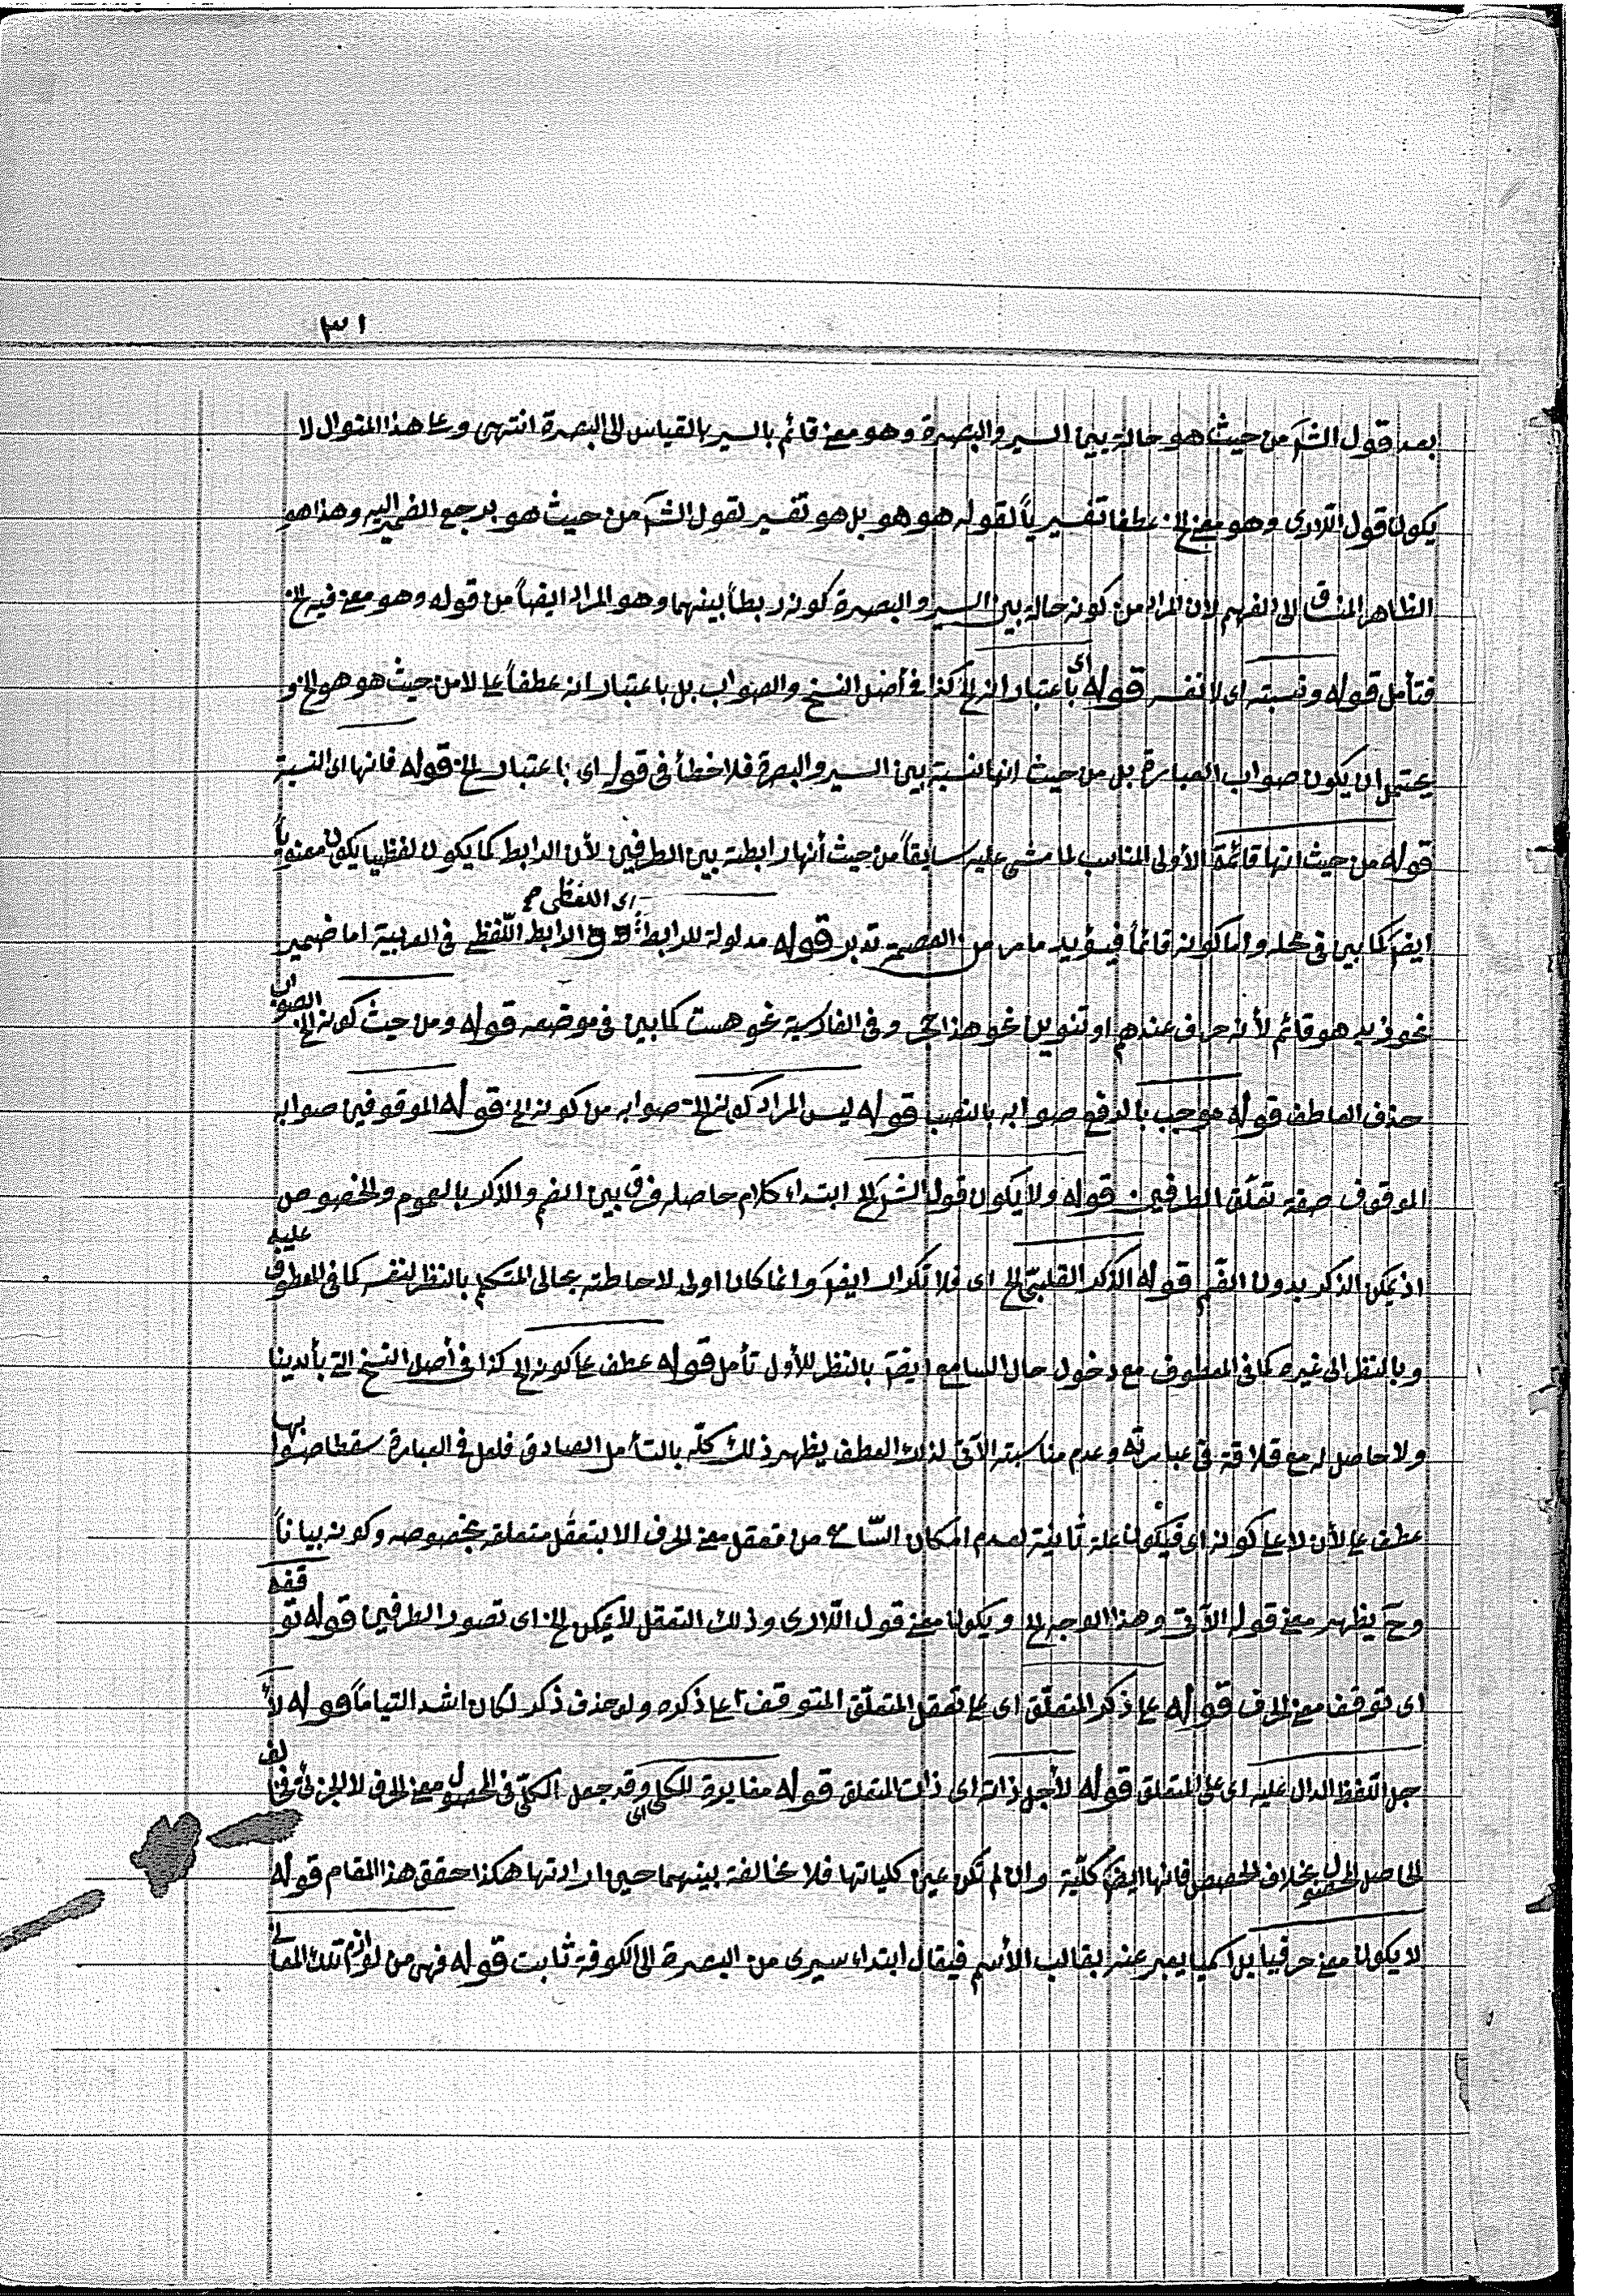 ٣١
بعد قول الشـَ من حيث هو حالة بين السير والبصرة وهو معنى قائم بالسير بالقياس الى البصرة انتهى وعلى هذا المنوال لا
يكون قول اللاري وهو معنى الخ عطفا تفسيرياً لقوله هو هو بل هو تفسير لقول الشـَ من حيث هو يرجع الضمير اليه وهذا هو
الظاهر المنساق الى الفهم لان المراد من كونه حالة بين السير والبصرة كونه ربطاً بينهما وهو المراد ايضاً من قوله وهو معنى فيه الخ
فتأمل قوله ونسبته اى لا نفسه قوله اى باعتبار انه الخ كذا في أصل النسخ والصواب بل باعتبار انه عطفاً على لا من حيث هو هو الخ و
يحتمل ان يكون صواب العبارة بل من حيث انها نسبة بين السير والبصرة فلا خطأ فى قوله اى باعتبار الخ قوله فانها اى النسبة
قوله من حيث انها قائمة الأولى المناسب لما مشى عليه سابقاً من حيث أنها رابطة بين الطرفين لأن الرابط كما يكون لفظيا يكون معنوياً
ايضَ كما بين فى محله واما كونه قائماً فيؤيد ما مر من العصمة تدبر قوله مدلولة للرابط اى اللفظى صح والرابط اللّفظے فى العربية اما ضمير
نحو زيد هو قائم لأنه حرف عندهم او تنوين نحو هذا حجر وفى الفارسية نحو هست كما بين فى موضعه قوله ومن حيث كونه الخ الصواب
حذف العاطف قوله موجب بالرفع صوابه بالنصب قوله ليس المراد كونه الخ صوابه من كونه الخ قوله الموقوفين صوابه
الموقوف صفة تعلّق الطرفين قوله ولا يكون قول الشـَ الخ ابتداء كلام حاصله فرق بين الفهم والذكر بالعموم والخصوص
اذ يمكن الذكر بدون الفهم قوله الذكر القلبىّ الخ اى فلا تكرار ايضَ وانما كان اولى لاحاطته بحالى المتكلم بالنظر لنفسه كما فى المعطوف عليه
وبالنظر الى غيره كما فى المعطوف مع دخول حال السامع ايضَ بالنظر للأول تأمل قوله عطف على كونه الخ كذا فى أصل النسخ التى بأيدينا
ولا حاصل له مع قلاقة فى عبارته وعدم مناسبته الآتى لذلك العطف يظهر ذلك كلّه بالتأمل الصادق فلعل فى العبارة سقطا صوابها
عطف على لأن لا على كونه اى فيكون علة ثانية لعدم امكان السّامع من تعقل معنى الحرف الا بتعقل متعلقه بخصوصه وكونه بياناً
وحَ يظهر معنى قوله الآتى وهذا الوجه الخ ويكون معنى قول اللّارى وذلك التعقل لا يمكن الخ اى تصور الطرفين قوله توقفه
اى توقف معنى الحرف قوله على ذكر المتعلّق اى على تعقل المتعلّق المتوقف على ذكره ولو حذف ذكر لكان اشد التياماً قوله لأ
جل اللّفظ الدال عليه اى على المتعلق قوله لأجل ذاته اى ذات المتعلق قوله مغايرة للكلى اى وقد جعل الكلىّ فى الحصول معنى الحرف لا الجزئى فخالف
الحاصل الحصول بخلاف الحصص فانها ايضَ كلّية وان لم تكن عين كلياتها فلا مخالفة بينهما حين ارادتها هكذا حقق هذا المقام قوله
لا يكون معنى حرفيا بل اسميا يعبر عنه بقالب الأسم فيقال ابتداء سيرى من البصرة الى الكوفة ثابت قوله فهى من لوازم تلك المعانى